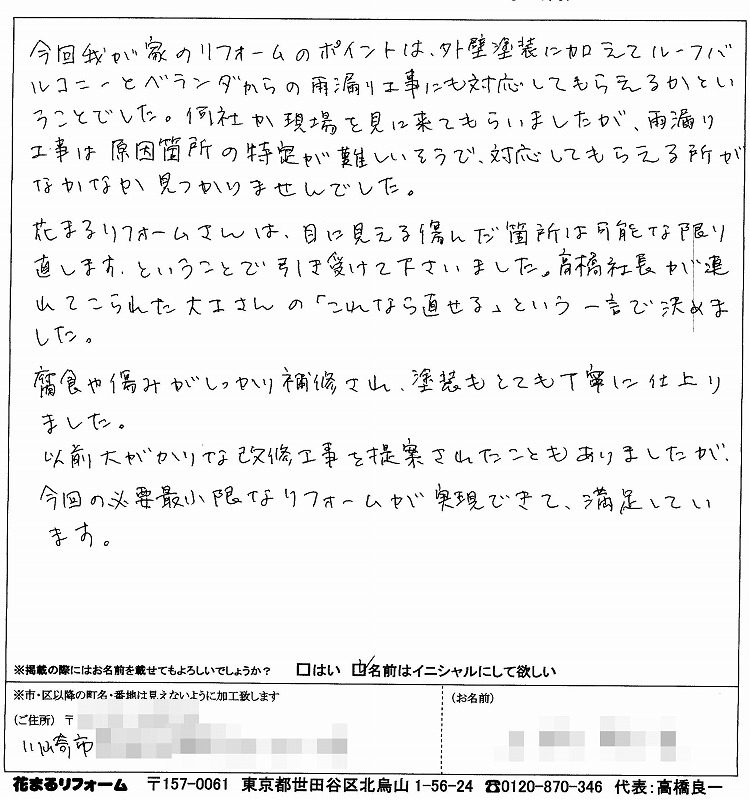 今回我が家のリフォームのポイントは、外壁塗装に加えてルーフバ
ルコニーとベランダからの雨漏り工事にも対応してもらえるかとい
うことでした。何社か現場を見に来てもらいましたが、雨漏り
工事は原因箇所の特定が難しいそうで、対応してもらえる所が
なかなか見つかりませんでした。
花まるリフォームさんは、目に見える傷んだ箇所は可能な限り
直します、ということで引き受けて下さいました。高橋社長が連
れてこられた大工さんの「これなら直せる」という一言で決めま
した。
腐食や傷みがしっかり補修され、塗装もとても丁寧に仕上り
ました。
以前大がかりな改修工事を提案されたこともありましたが、
今回の必要最小限なリフォームが実現できて、満足してい
ます。
※掲載の際にはお名前を載せてもよろしいでしょうか? □はい □名前はイニシャルにして欲しい
※市・区以降の町名・番地は見えないように加工致します
(ご住所) 〒
(お名前)
川崎市
花まるリフォーム 〒157-0061 東京都世田谷区北烏山 1-56-24 ☎0120-870-346 代表:高橋良一